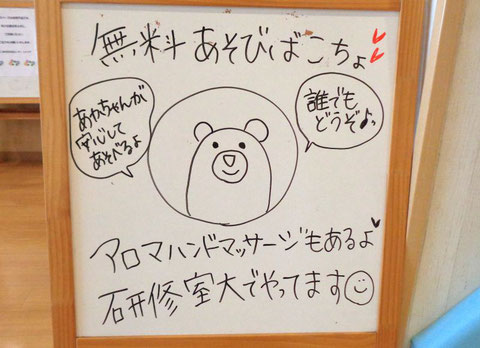 無料あそびばこちょ
あかちゃんが
安心して
あそべるよ
誰でも
どうぞよっ
アロマハンドマッサージもあるよ
研修室大でやってます